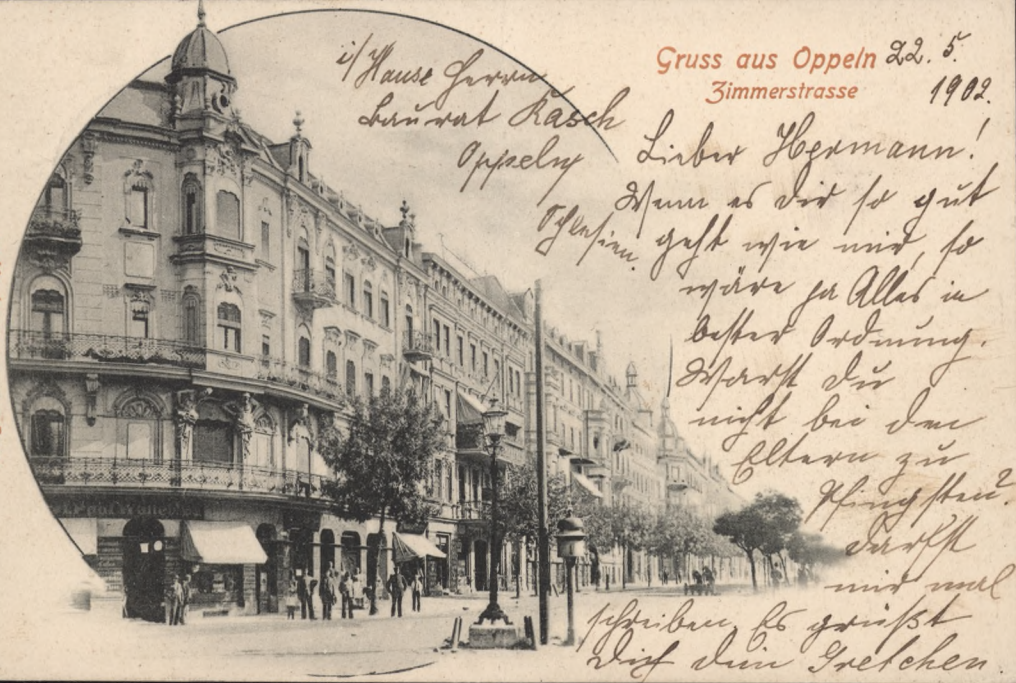 Gruss aus Oppeln 22. 5.
Zimmerstrasse 1902.
i/Hause Herrn
Baurat Kasch
Oppeln
Schlesien.
Lieber Hermann!
Wenn es Dir so gut
geht wie mir, so
wäre ja Alles in
bester Ordnung.
Warst Du
nicht bei den
Eltern zu
Pfingsten?
Darfst
mir mal
schreiben. Es grüßt
Dich Dein Gretchen.